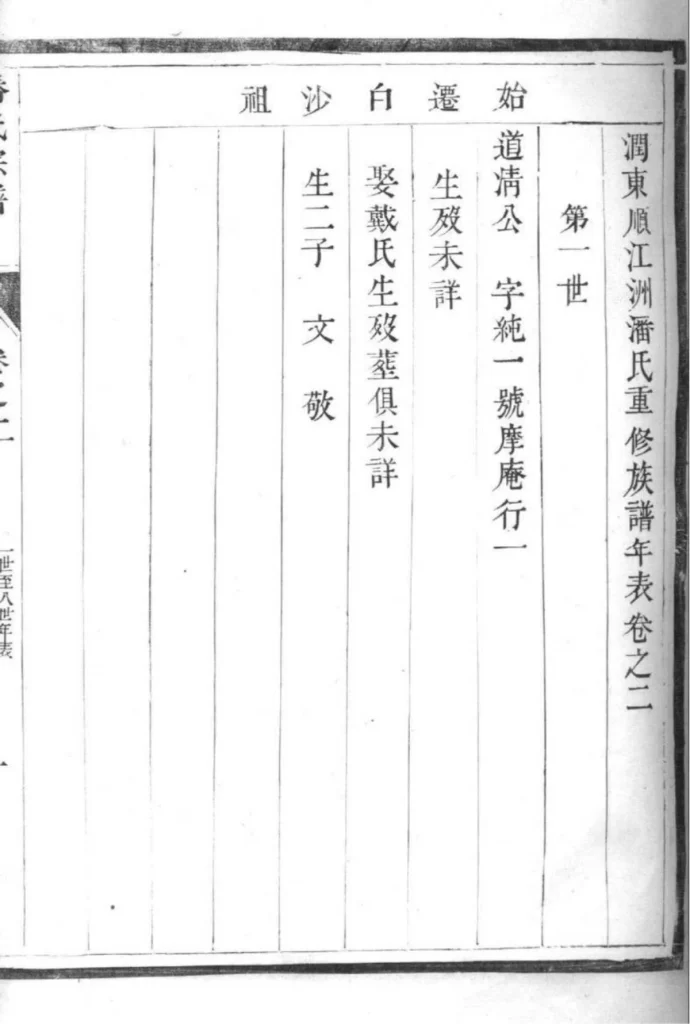 潤東順江洲潘氏重修族譜年表卷之二
第一世
始遷白沙祖
道清公　字純一號摩庵行一
生歿未詳
娶戴氏生歿塟俱未詳
生二子　文　敬
一世至八世年表
一